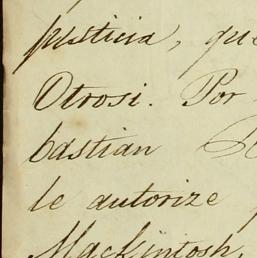 justicia, que
Otrosi. Por
bastian
le autorize
Mackintosh,